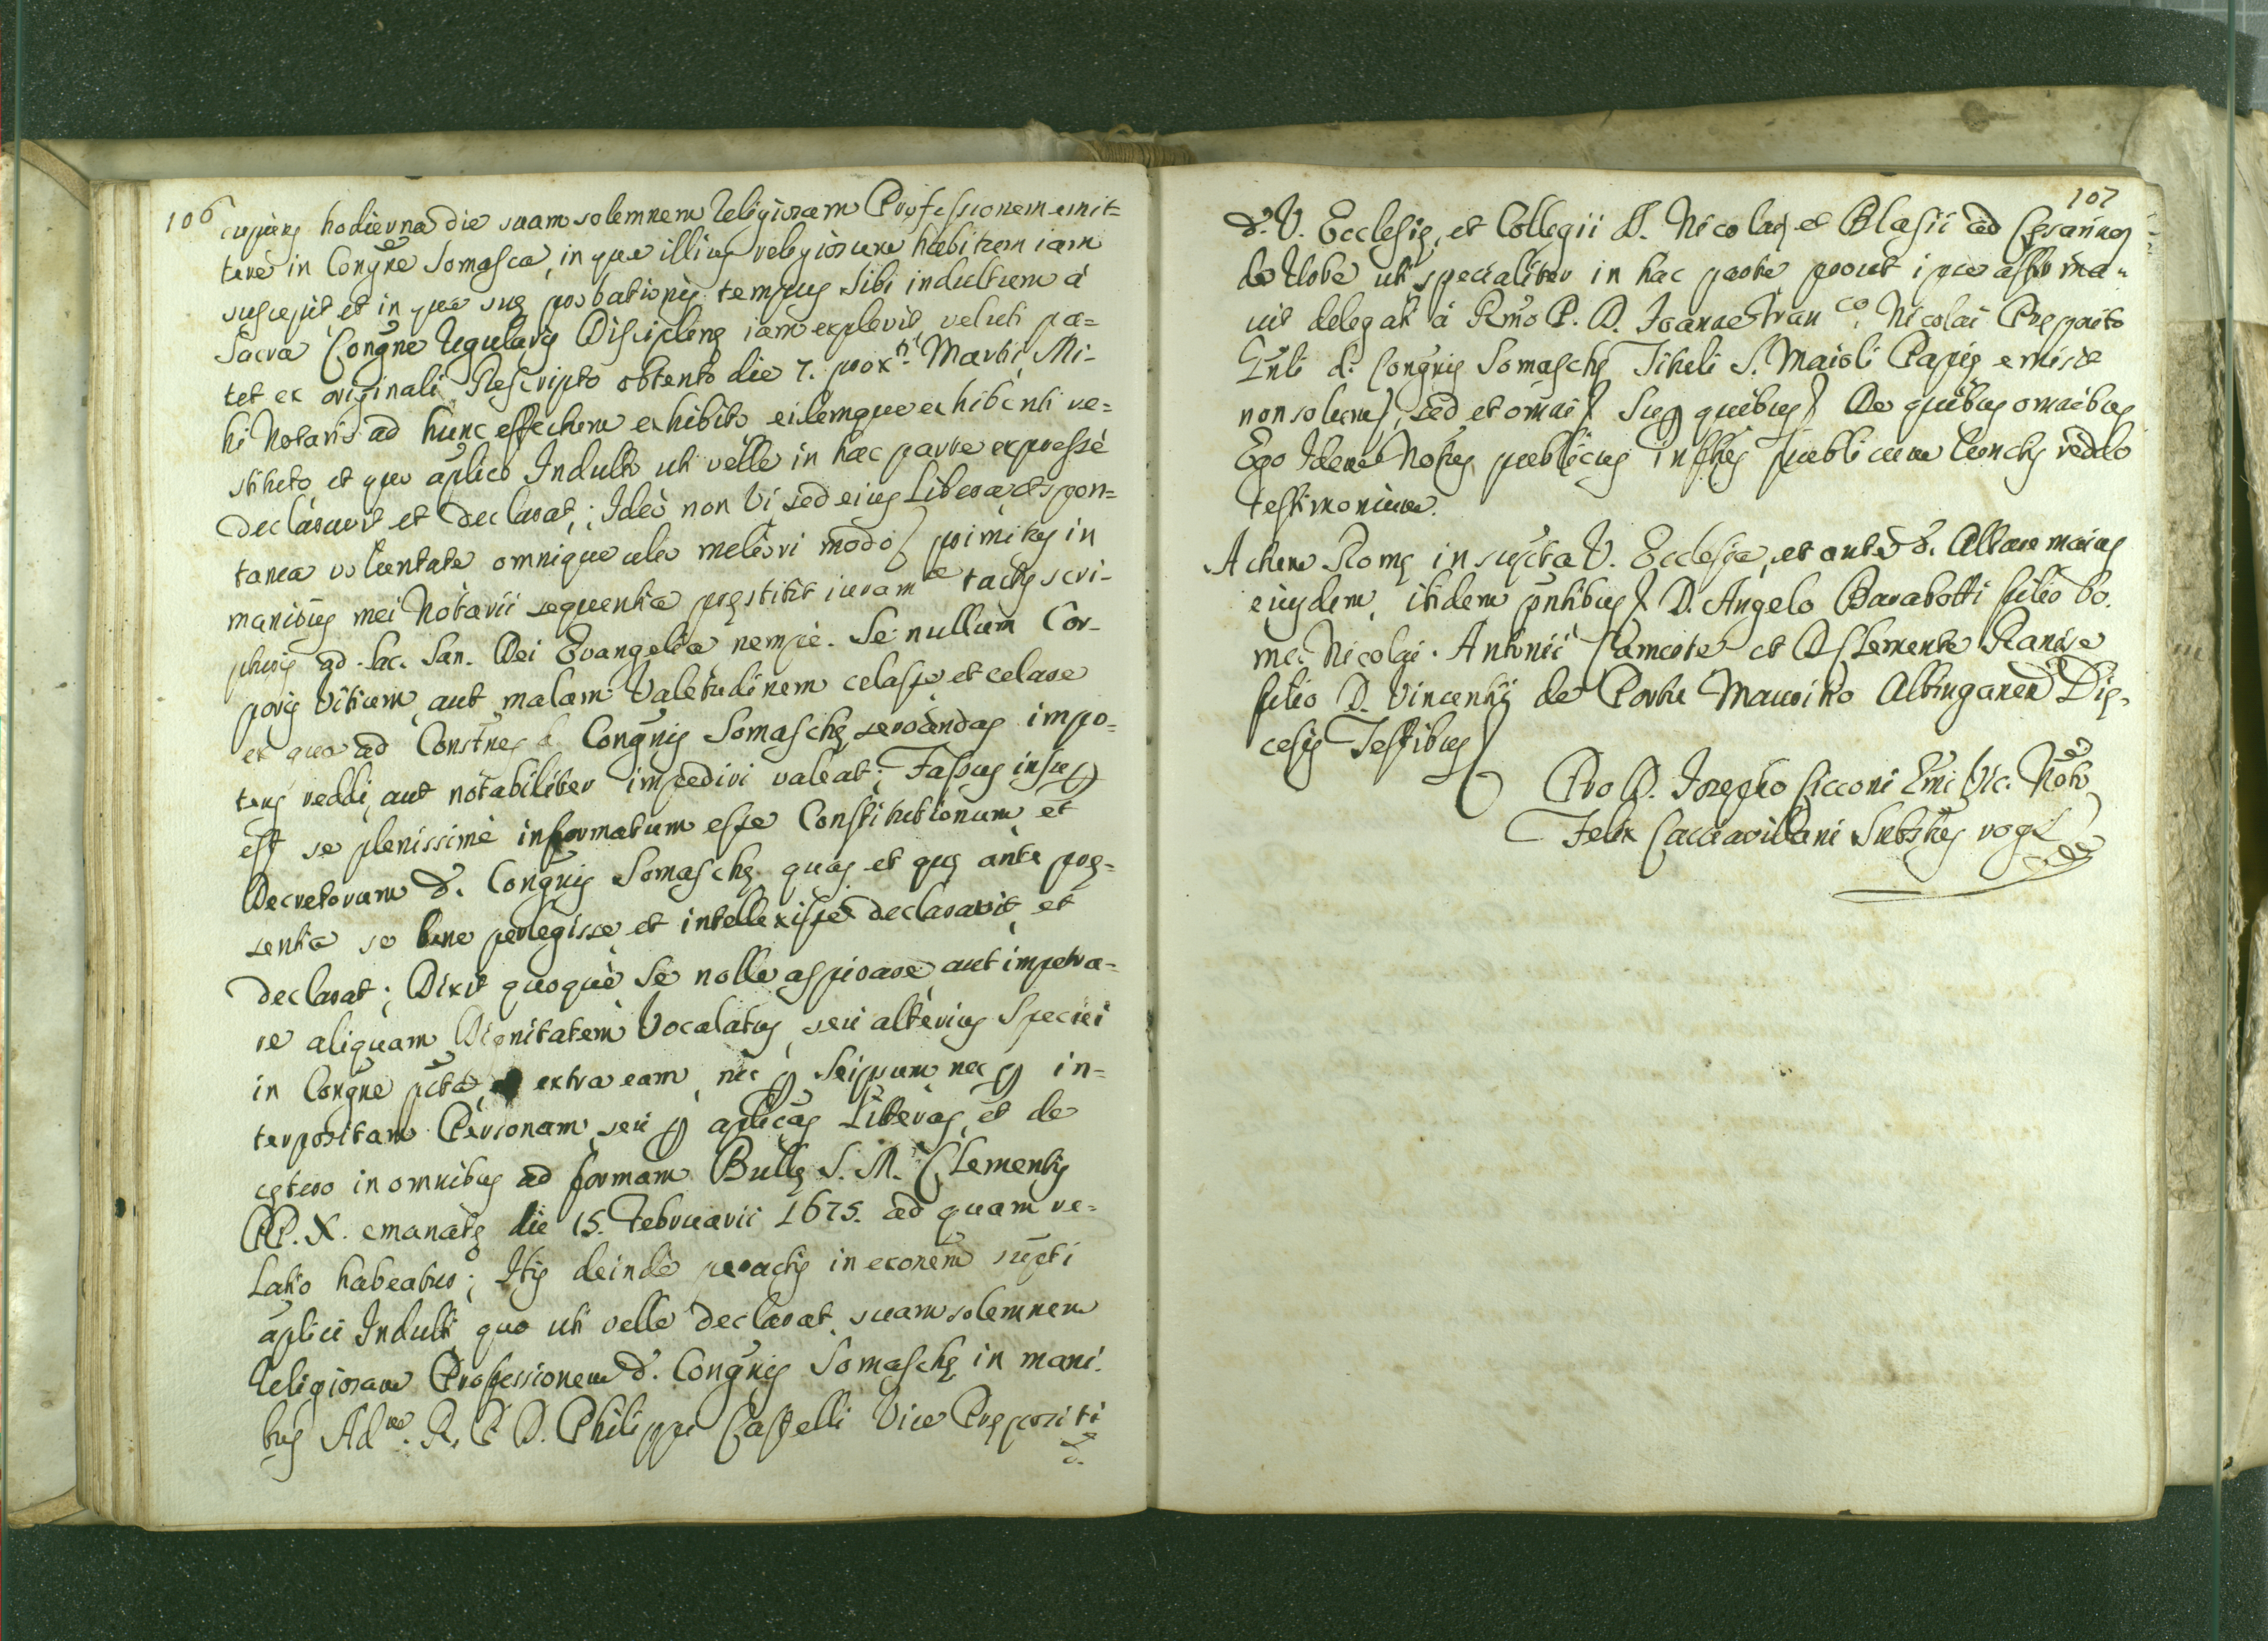 106
cupiens hodierna die suam solemnem Religiosam Professionem emit=
tere in Congñe Somasca, in qua illius religiosum habitum iam
suscepit, et in qua suę probationis tempus sibi indultum à
Sacra Congñe Regularis Disciplinę iam explevit, veluti pa=
tet ex originali Rescripto obtento die 7. prox.ti Martii Mi-
hi Notario ad hunc effectum exhibito eidemque exhibenti re=
stituto, et quo aplico Indulto uti velle in hac parte expressè
declaravit et declarat; Ideò non vi sed eius libera et spon=
tanea voluntate omnique alio meliori modo primitus in
manibus mei Notarii sequentia pręstitit iuram.ta tactis scri-
pturis ad Sac. San. Dei Evangelia nempè. Se nullum Cor-
poris vitium, aut malam Valetudinem celasse et celare
ex quo ad Constnes d. Congnis Somaschę servandas impo-
tens reddi, aut notabiliter impediri valeat; Fassus insup
est se plenissimè informatum esse Constitutionum et
Decretorum d. Congnis Somaschę quas et quę ante prę-
sentia se bene perlegisse et intellexisse declaravit et
declarat; Dixit quoque se nolle aspirare aut impetra-
re aliquam Dignitatem Vocalatus, seu alterius speciei
in Congñe pcta, extra eam nec p Seipsum nec p in=
terpositam Personam, seu p aplicas Literas, et de
cętero in omnibus ad formam Bullę S. M. Clementis
PP. X. emanatę die 15. Februarii 1675. ad quam re=
latio habeatur; His deinde peractis in exonem supcti
aplici Indulti quo uti velle declarat, suam solemnem
Religiosam Professionem d. Congnis Somaschę in mani.
bus Ad.m R. P. D. Philippi Castelli Vice Prępositi
d.
107
d. V. Ecclesię, et Collegii S. Nicolai et Blasii ad Cęsarinos
de Urbe uti specialiter in hac parte prout ipse affirma-
vit delegati à Rmo P. D. Joanne Fran.co Nicolai Pręposito
Gnli d. Congnis Somaschę Tituli S. Maioli Papię emisit
non solum, sed et omni Sup quibus De quibus omnibus
Ego Idem Notrius publicus infrus publicum cunctis reddo
testimonium.
Actum Romę in supcta V. Ecclesia, et ante d. Altare maius
eiusdem, ibidem pntibus D. Angelo Barabotti filio bo.
me. Nicolai Antonii Camerte et D. Clemente Ranise
filio D. Vincentii de Portu Mauritio Albinganen Dię-
cesis Testibus
Pro D. Josepho Cicconi Emi Vic. Noto
Felix Cacciavillani Substus rogs